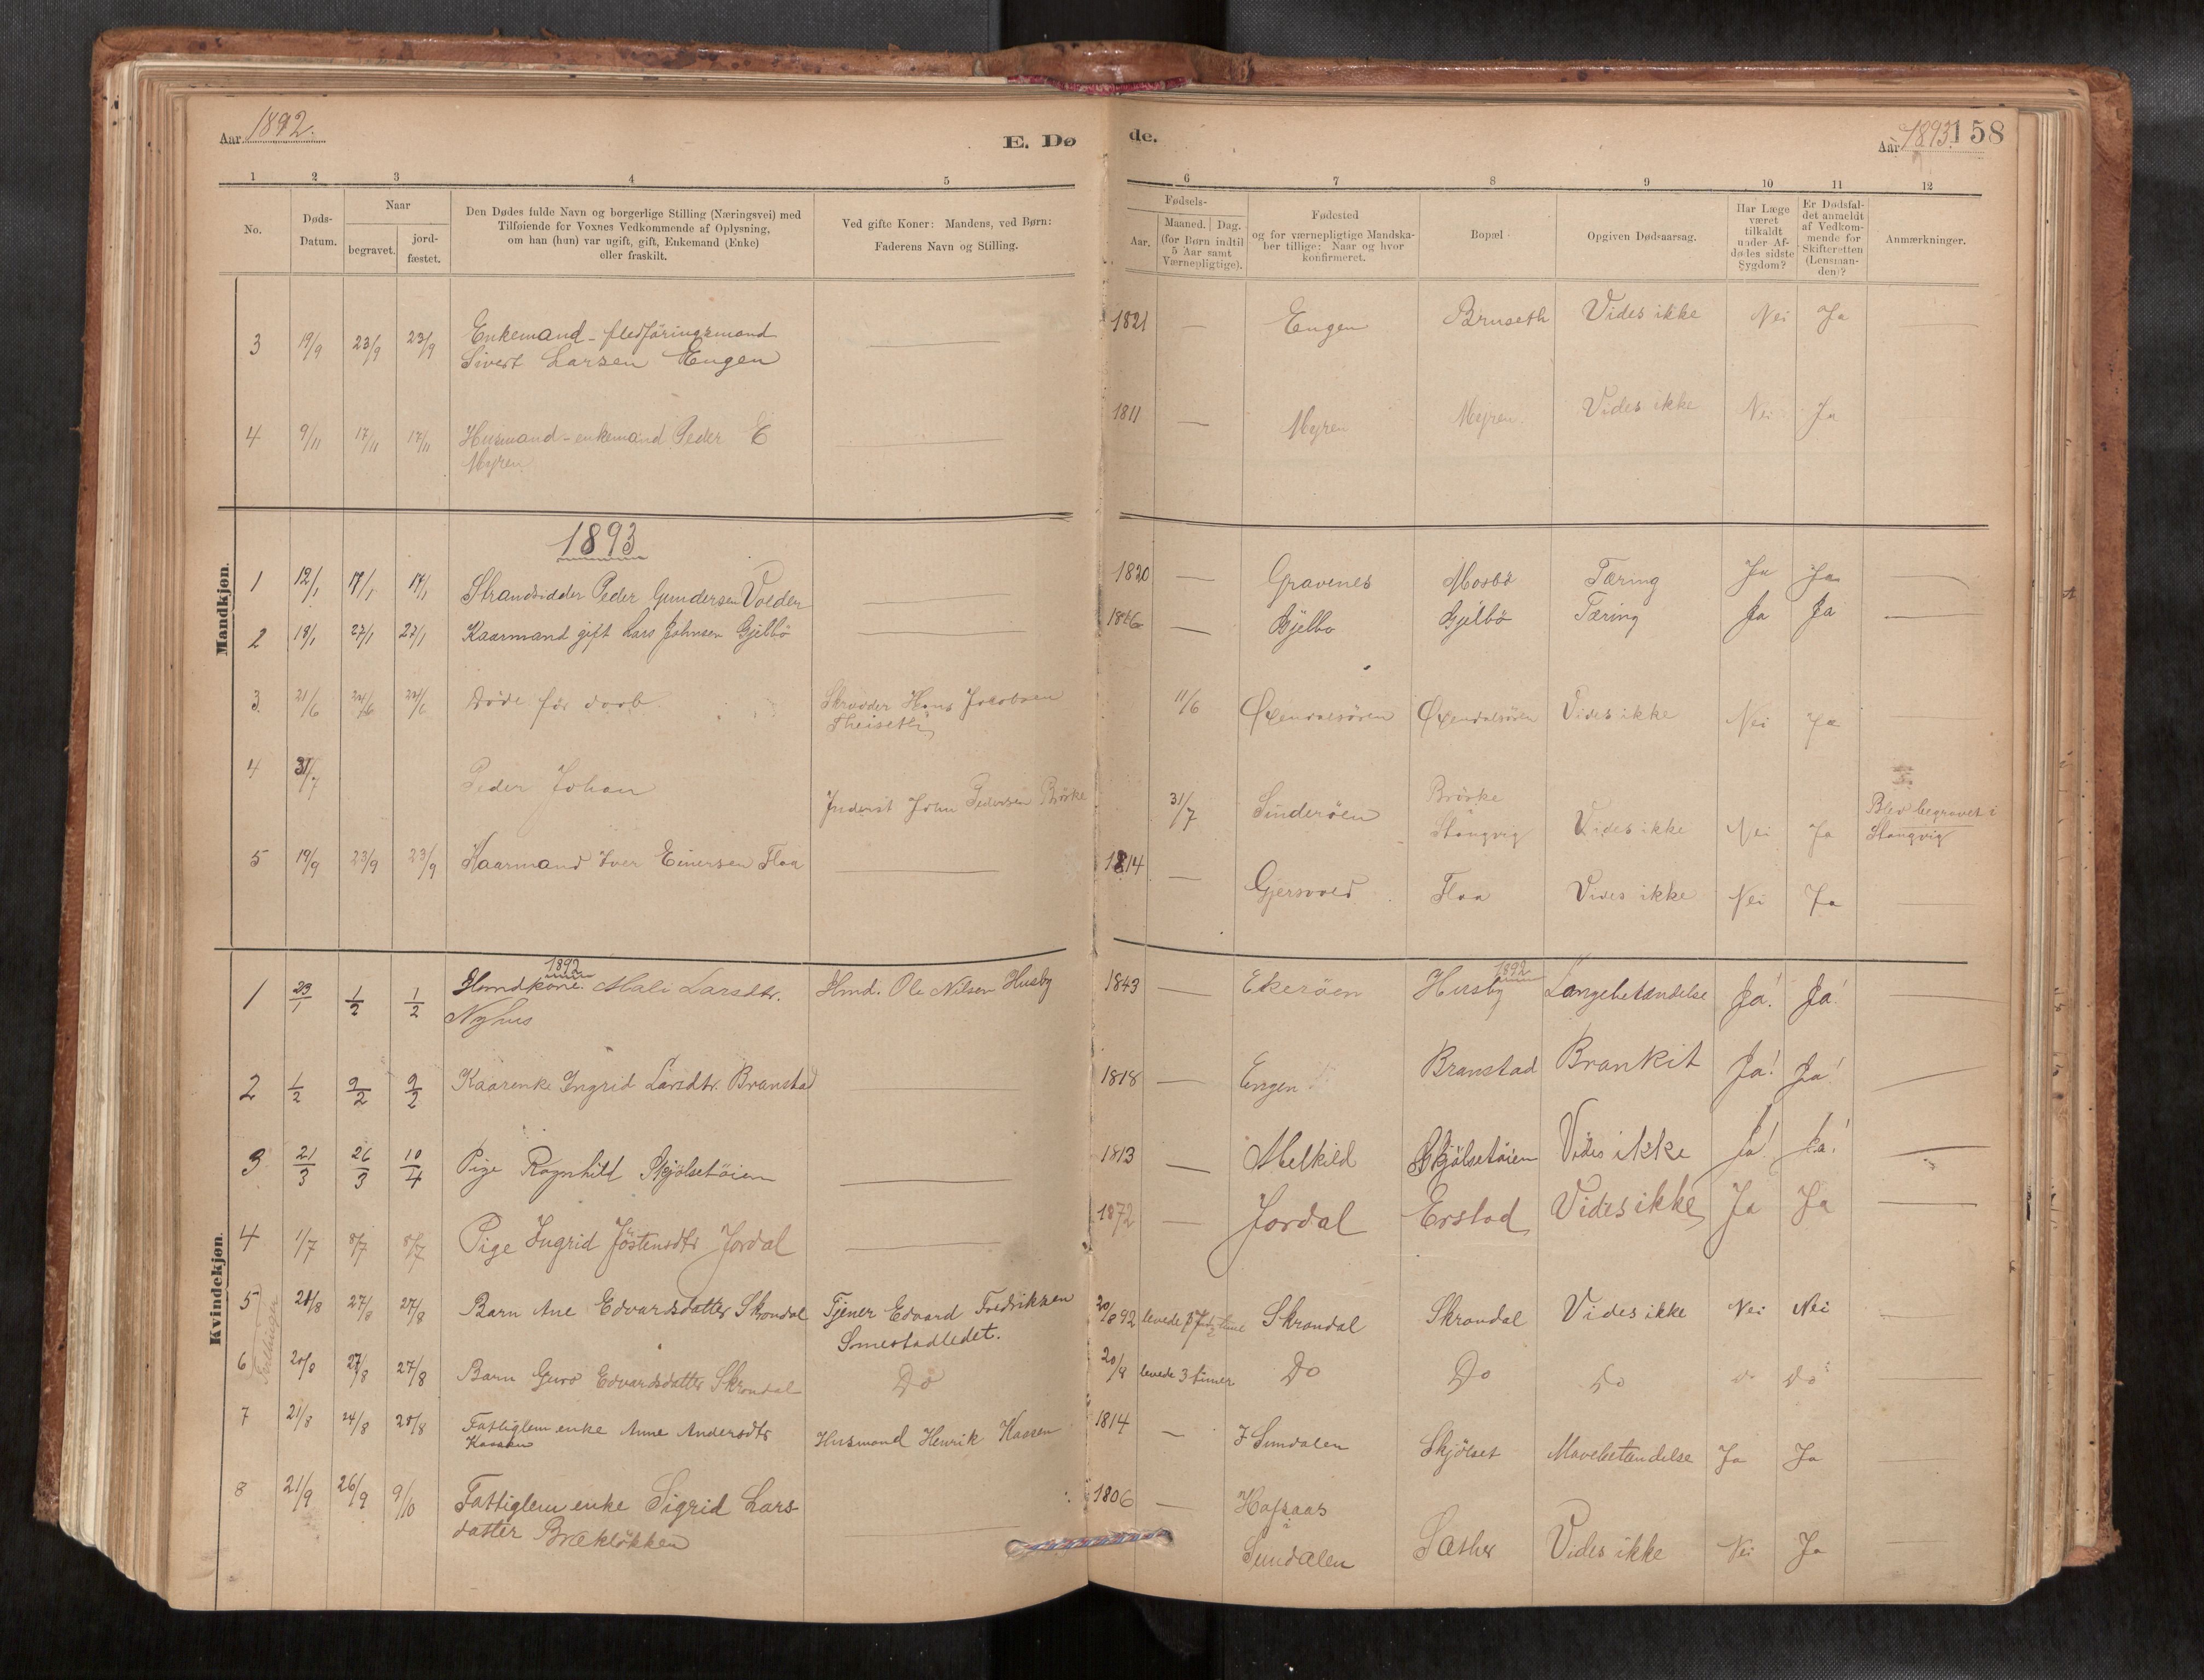 Aar 1892.
E. Dø
de.
Aar 1893.
158
1 2 3 4 5 6 7 8 9 10 11 12
No.
Døds-
Datum.
Naar
begravet.
jord-
fæstet.
Den Dødes fulde Navn og borgerlige Stilling (Næringsvei) med
Tilføiende for Voxnes Vedkommende af Oplysning,
om han (hun) var ugift, gift, Enkemand (Enke)
eller fraskilt.
Ved gifte Koner: Mandens, ved Børn:
Faderens Navn og Stilling.
Fødsels-
Aar.
Maaned. Dag.
(for Børn indtil
5 Aar samt
Værnepligtige).
Fødested
og for værnepligtige Mandska-
ber tillige: Naar og hvor
konfirmeret.
Bopæl
Opgiven Dødsaarsag.
Har Læge
været
tilkaldt
under Af-
dødes sidste
Sygdom?
Er Dødsfal-
det anmeldt
af Vedkom-
mende for
Skifteretten
(Lensman-
den)?
Anmærkninger.
3 19/9 23/9 23/9 Enkemand - fledföringsmand
Sivert Larsen Engen
1821 — Engen Bruseth Vides ikke Nei Ja
4 9/11 17/11 17/11 Husmand - enkemand Peder E
Myren
1811 — Myren Myren. Vides ikke Nei Ja
Mandkjøn.
1893
1 12/1 17/1 17/1 Strandsidder Peder Gundersen Volden
1820 — Gravenes Mosbö Tæring Ja Ja
2 18/1 27/1 27/1 Kaarmand gift Lars Johnsen Gjelbö
1826 — Gjelbo Gjelbö Tæring Ja Ja
3 21/6 24/6 24/6 Döde för daab Skrædder Hans Jacobsen
Theiseth
11/6 Øxendalsören Øxendalsören Vides ikke Nei Ja
4 31/7 Peder Johan Inderst John Pedersen Bröske
31/7 Sunderöen Bröske
Stangvig Vides ikke Nei Ja Blev begravet i
Stangvig
5 19/9 23/9 23/9 Kaarmand Iver Einersen Flaa
1814 — Gjersvold Flaa Vides ikke Nei Ja
Kvindekjøn.
1892
1 23/1 1/2 1/2 Hmdkone. Mali Larsdtr.
Nyhus
Hmd. Ole Nilsen Husby
1843 — Ekeröen Husby 1892 Lungebetændelse Ja! Ja!
2 1/2 9/2 9/2 Kaarenke Ingrid Larsdtr. Branstad
1818 — Engen Branstad Brankit Ja! Ja!
3 21/3 26/3 10/4 Pige Ragnhild Skjölsetöien
1813 — Melkild Skjölsetöien Vides ikke Ja! Ja!
4 1/7 8/7 8/7 Pige Ingrid Jöstensdtr Jordal
1872 — Jordal Erstad Vides ikke Ja Ja
Tvillinger
5 21/8 27/8 27/8 Barn Ane Edvardsdatter Skrondal Tjener Edvard Fredriksen
Smestadledet.
20/8 92 levede Skrondal Skrondal Vides ikke Nei Nei
6 20/8 27/8 27/8 Barn Guro Edvardsdatter Skrondal Do
20/8 levede 3 timer Do Do Do Do Do
7 21/8 24/8 28/8 Fattiglem enke Anne Andersdtr
Kaasen
Husmand Henrik Kaasen
1814 — I Sundalen Skjölset Mavebetændelse Ja Ja
8 21/9 26/9 9/10 Fattiglem enke Sigrid Lars-
datter Brækløkken
1806 — Hafsaas
i
Sundalen Sæther Vides ikke Nei Ja